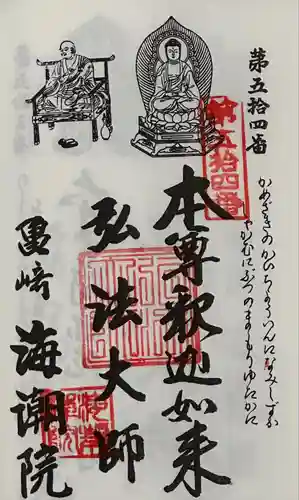 第五拾四番
かめざきのかひちょういんになみしずか
やかむにぶつのまもりゆたかに
第五拾四番
本尊釈迦如来
弘法大師
亀崎 海潮院